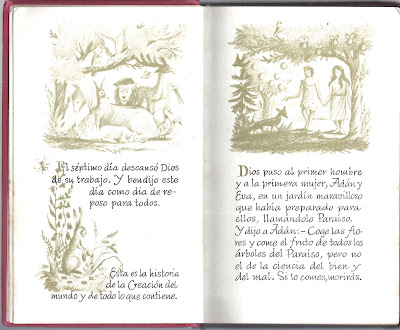 El séptimo día descansó Dios
de su trabajo. Y bendijo este
día como día de re-
poso para todos.
Esta es la historia
de la Creación del
mundo y de todo lo que contiene.
Dios puso al primer hombre
y a la primera mujer, Adán y
Eva, en un jardín maravilloso
que había preparado para
ellos, llamándolo Paraíso.
Y dijo a Adán:- Coge las flo-
res y come el fruto de todos los
árboles del Paraíso, pero no
el de la ciencia del bien y
del mal. Si lo comes, morirás.